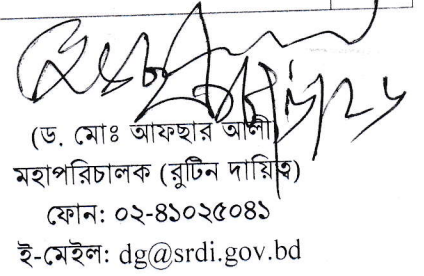 (ড. মোঃ আফছার আলী)
মহাপরিচালক (রুটিন দায়িত্ব)
ফোন: ০২-৪১০২৫০৪১
ই-মেইল: dg@srdi.gov.bd